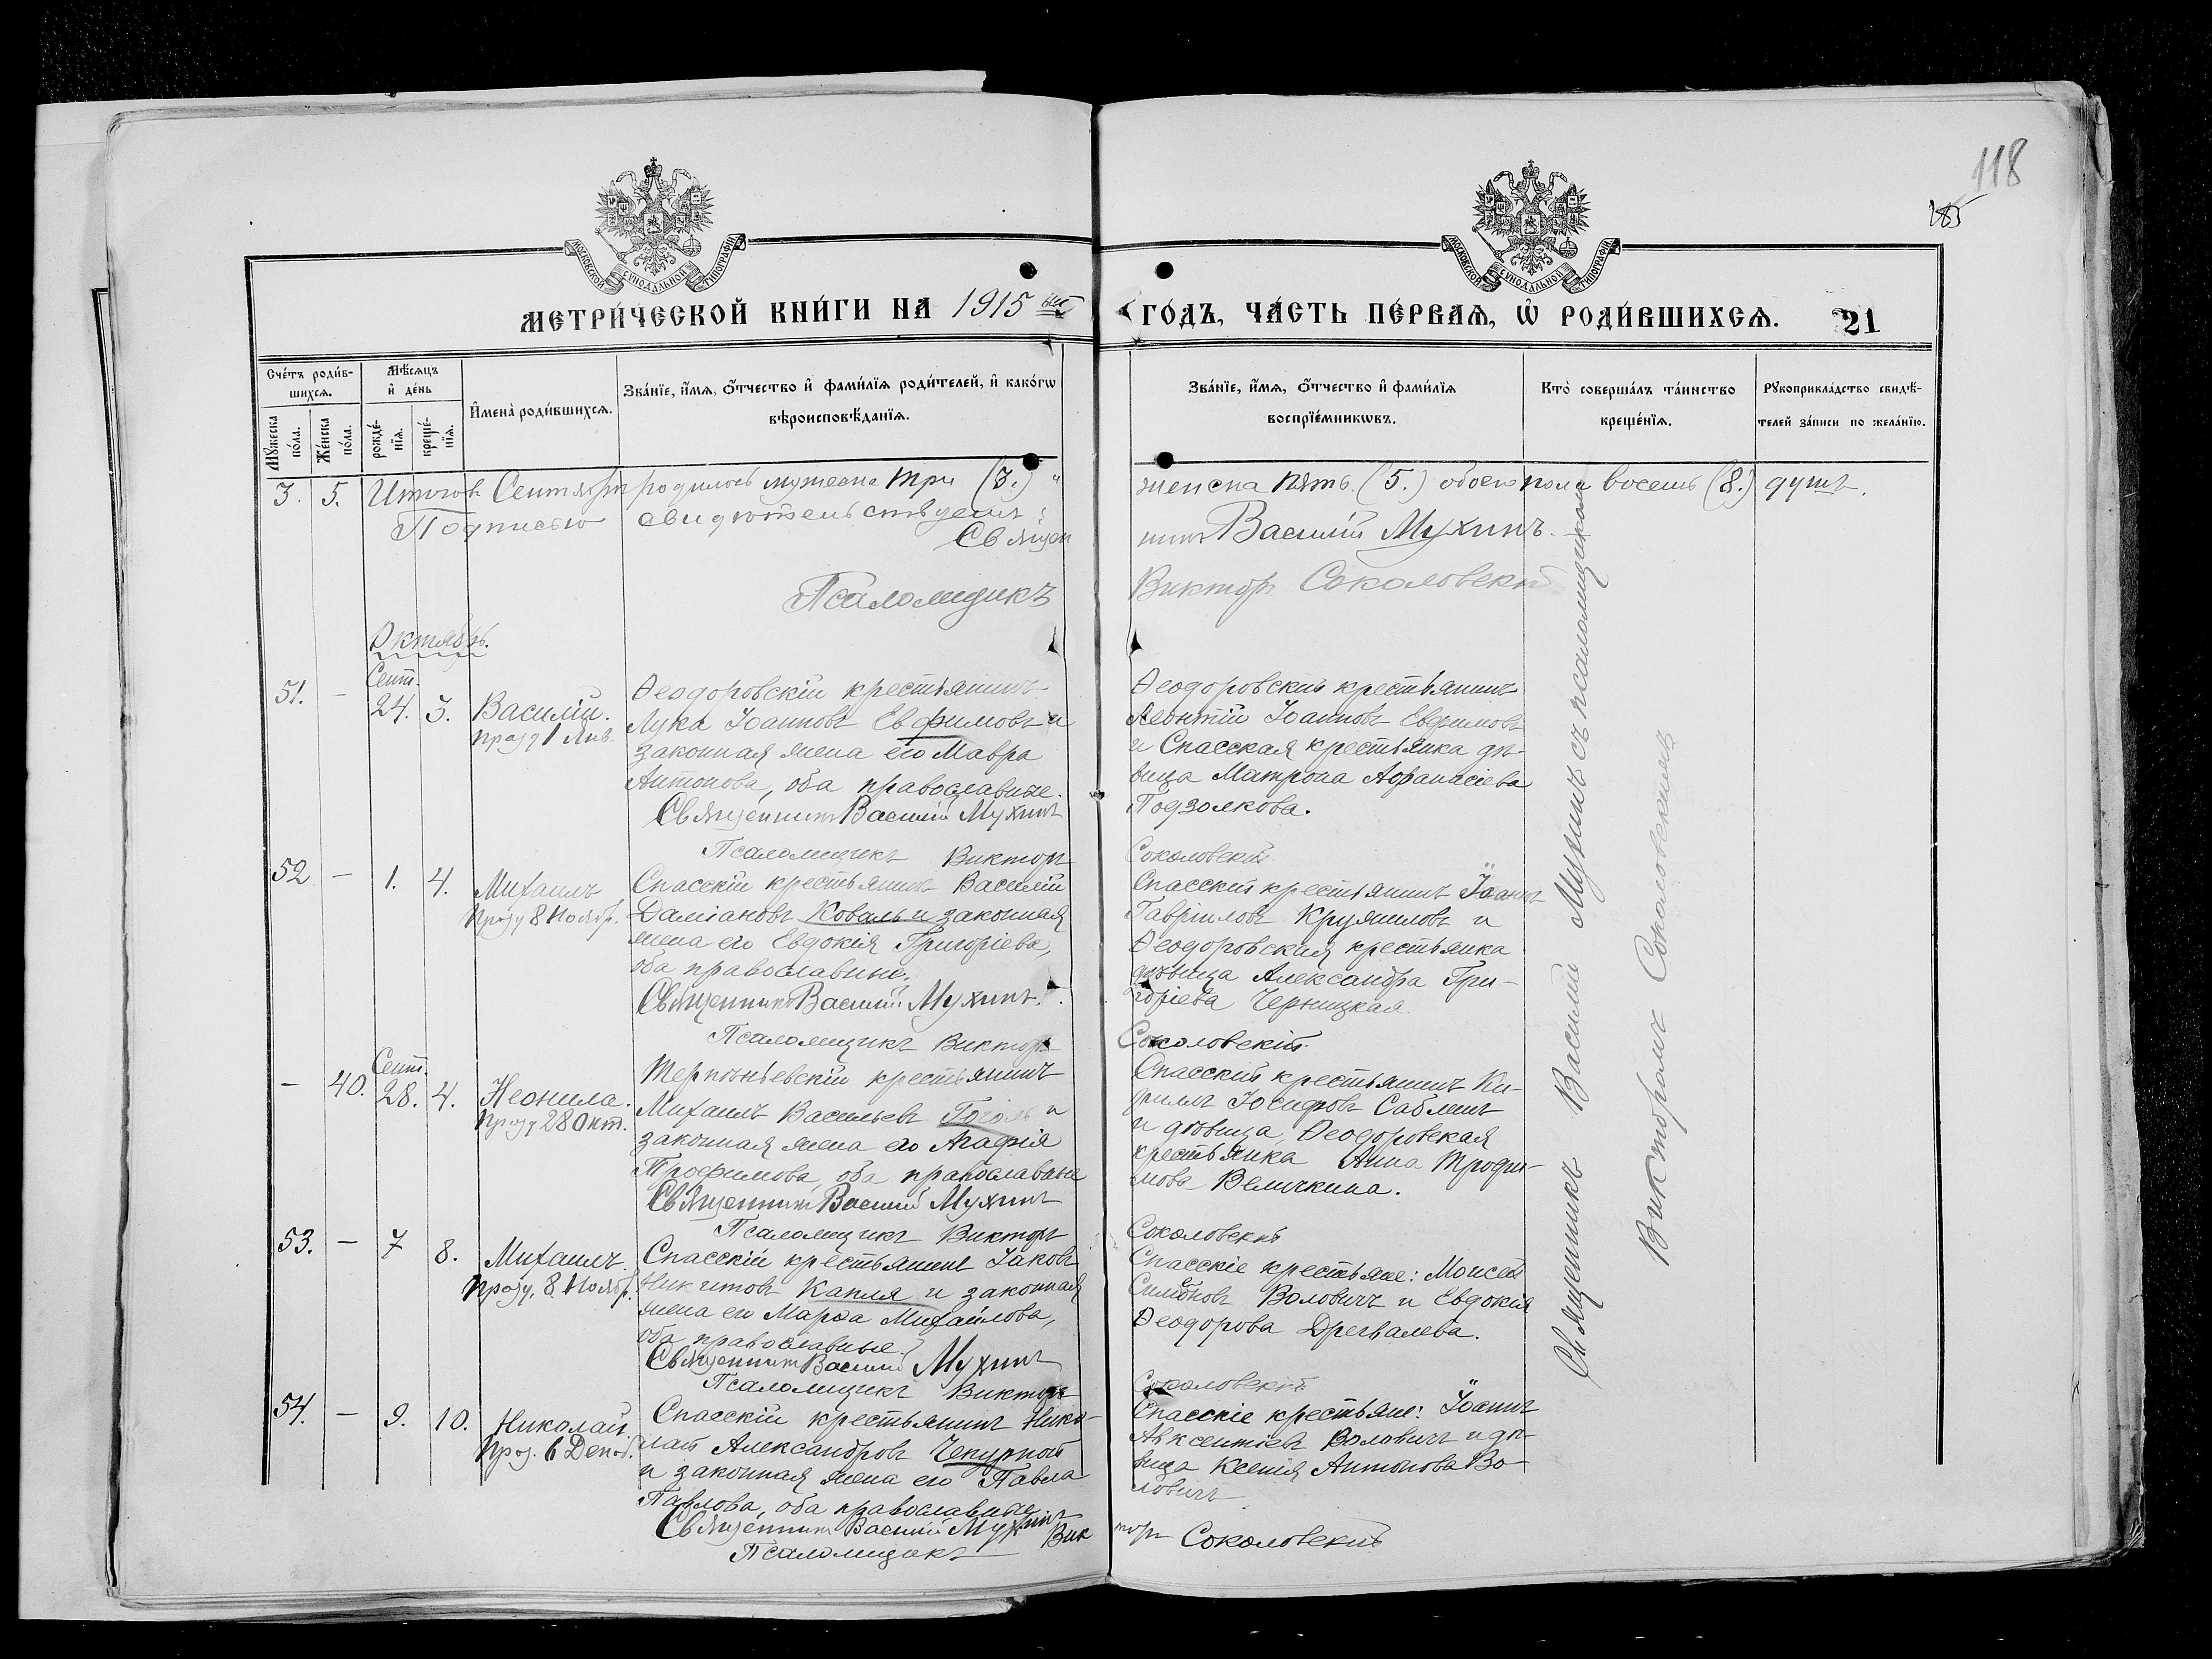 118
185
МОСКОВСКОЙ СѴНОДАЛЬНОЙ ТИПОГРАФІИ
МОСКОВСКОЙ СѴНОДАЛЬНОЙ ТИПОГРАФІИ
МЕТРИ́ЧЕСКОЙ КНИ́ГИ НА 1915 ый
ГОДЪ, ЧА́СТЬ ПЕ́РВАѦ, Ѽ РОДИ́ВШИХСѦ. 21
Сче́тъ роди́в-
шихсѧ.
Мꙋ́жеска по́ла.
Же́нска по́ла.
Мѣ́сѧцъ
и҆ де́нь
рожде́-
нїѧ.
креще́-
нїѧ.
И҆мена̀ роди́вшихсѧ.
Зва́нїе, и҆́мѧ, ѻ҆́тчество и҆ фами́лїѧ роди́телей, и҆ како́гѡ
вѣроисповѣ́данїѧ.
Зва́нїе, и҆́мѧ, ѻ҆́тчество и҆ фами́лїѧ
воспрїе́мникѡвъ.
Кто̀ соверша́лъ та́инство
креще́нїѧ.
Рꙋкоприкла́дство свидѣ́-
телей за́писи по жела́нїю.
3. 5. Итого въ Сентябрѣ родилось мужеска три (3.) "
женска пять (5.) обоего пола восемь (8.) душъ.
Подписью свидѣтельствуемъ:
Священ
никъ Василій Мухинъ.
Псаломщикъ
Викторъ Соколовскій
Октябрь.
Сент.
51. - 24. 3. Василій.
празд 1 Янв.
Ѳеодоровскій крестьянинъ
Лука Іоанновъ Евфимовъ и
законная жена его Мавра
Антонова, оба православные.
Священникъ Василій Мухинъ
Псаломщикъ Викторъ
Ѳеодоровскій крестьянинъ
Леонтій Іоанновъ Евфимовъ
и Спасская крестьянка дѣ-
вица Матрона Аѳанасіева
Подзолкова.
Соколовскій
52 - 1. 4. Михаилъ
празд 8 Ноябр.
Спасскій крестьянинъ Василій
Даміановъ Коваль и законная
жена его Евдокія Григоріева,
оба православные.
Священникъ Василій Мухинъ.
Псаломщикъ Викторъ
Спасскій крестьянинъ Іоаннъ
Гавріиловъ Кружиловъ и
Ѳеодоровская крестьянка
дѣвица Александра Гри-
горіева Черницкая.
Соколовскій.
Сент.
- 40. 28. 4. Неонила.
празд 28 Окт.
Терпѣньевскій крестьянинъ
Михаилъ Васильевъ Гоголь и
законная жена его Агафія
Трофимова, оба православные
Священникъ Василій Мухинъ
Псаломщикъ Викторъ
Спасскій крестьянинъ Ки-
риллъ Іосифовъ Саблинъ
и дѣвица, Ѳеодоровская
крестьянка Анна Трофи-
мова Величкина.
Соколовскій
53. - 7 8. Михаилъ.
празд. 8 Ноябр.
Спасскій крестьянинъ Іаковъ
Никитовъ Капля и законная
жена его Марѳа Михайлова,
оба православные.
Священникъ Василій Мухинъ
Псаломщикъ Викторъ
Спасскіе крестьяне: Моисей
Симеоновъ Воловичъ и Евдокія
Ѳеодорова Дрегвалева.
Соколовскій
54. - 9. 10. Николай.
празд. 6 Декаб.
Спасскій крестьянинъ Нико-
лай Александровъ Чекурной
и законная жена его Павла
Павлова, оба православные
Священникъ Василій Мухинъ
Псаломщикъ Вик
Спасскіе крестьяне: Іоаннъ
Авксентіевъ Воловичъ и дѣ-
вица Ксенія Антонова Во-
ловичъ
торъ Соколовскій
Священникъ Василій Мухинъ съ псаломщикомъ
Викторомъ Соколовскимъ